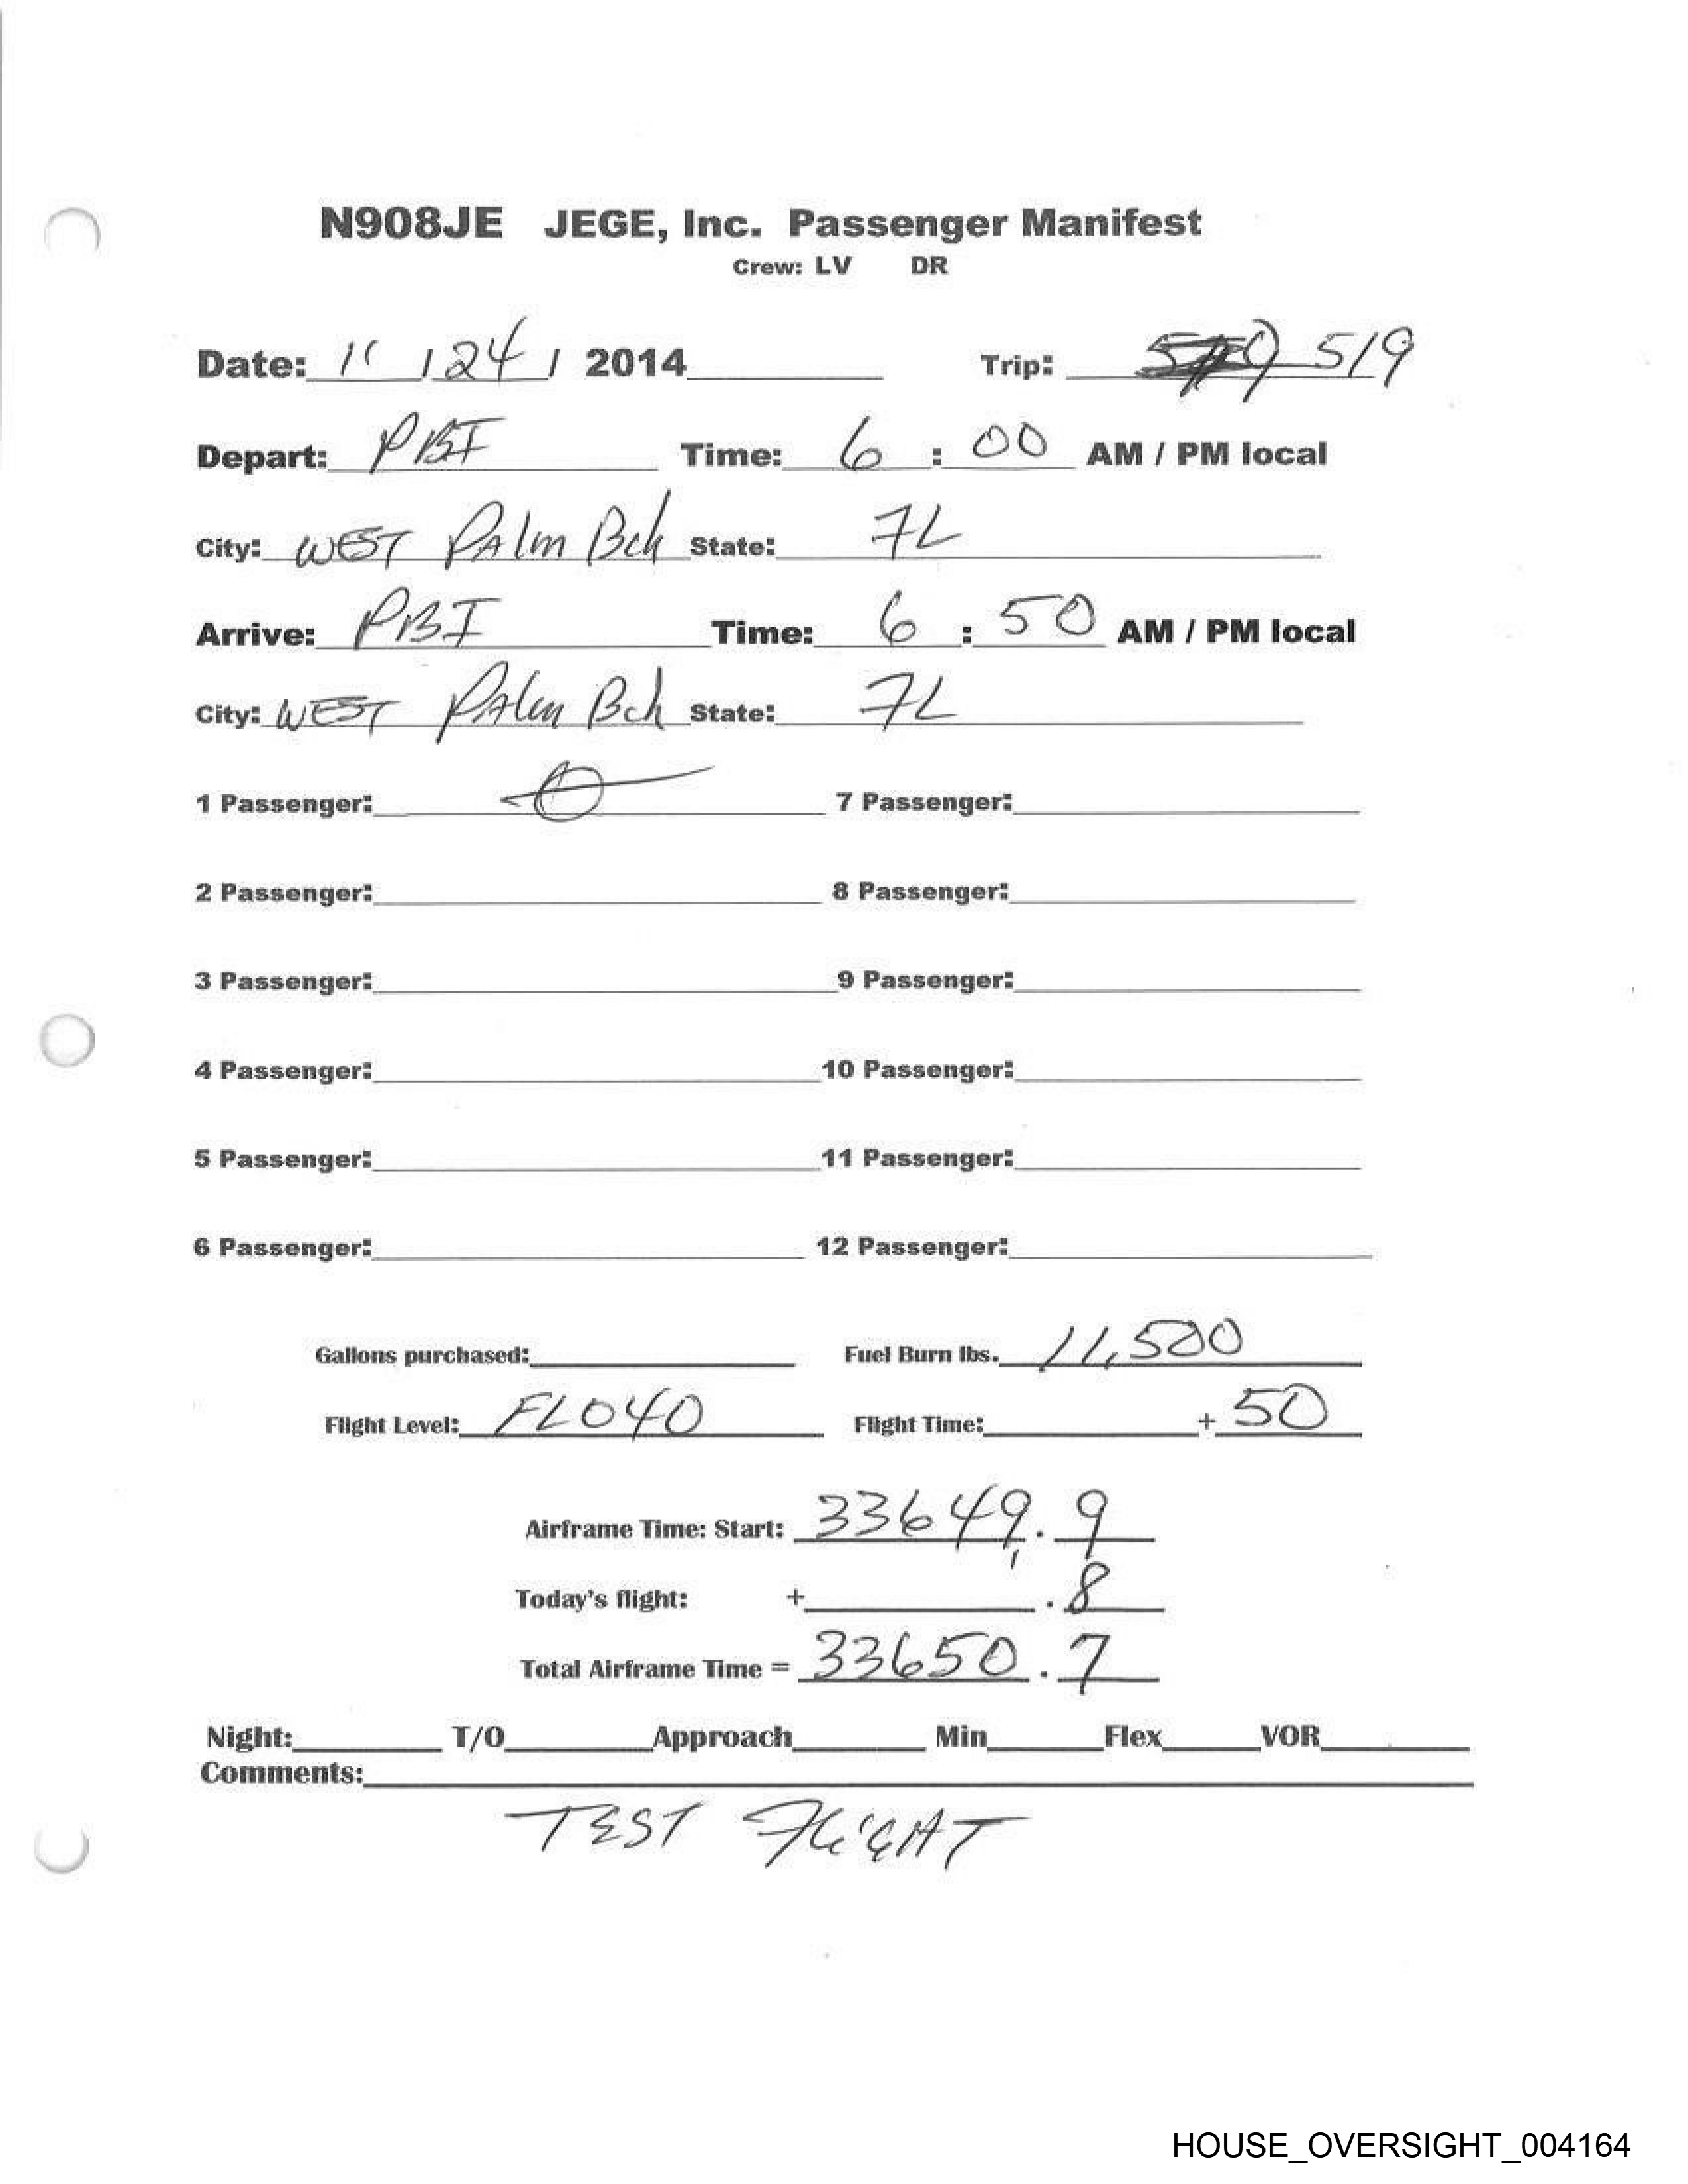 N908JE JEGE, Inc. Passenger Manifest
Crew: LV DR
Date: 11 / 24 / 2014 Trip: 519
Depart: PBI Time: 6 : 00 AM / PM local
City: WEST PAlm Bch State: FL
Arrive: PBI Time: 6 : 50 AM / PM local
City: WEST PAlm Bch State: FL
1 Passenger: 7 Passenger:
2 Passenger: 8 Passenger:
3 Passenger: 9 Passenger:
4 Passenger: 10 Passenger:
5 Passenger: 11 Passenger:
6 Passenger: 12 Passenger:
Gallons purchased: Fuel Burn lbs. 11,500
Flight Level: FL040 Flight Time: + 50
Airframe Time: Start: 33649.9
Today's flight: + .8
Total Airframe Time = 33650.7
Night: T/O Approach Min Flex VOR
Comments:
TEST FLIGHT
HOUSE_OVERSIGHT_004164